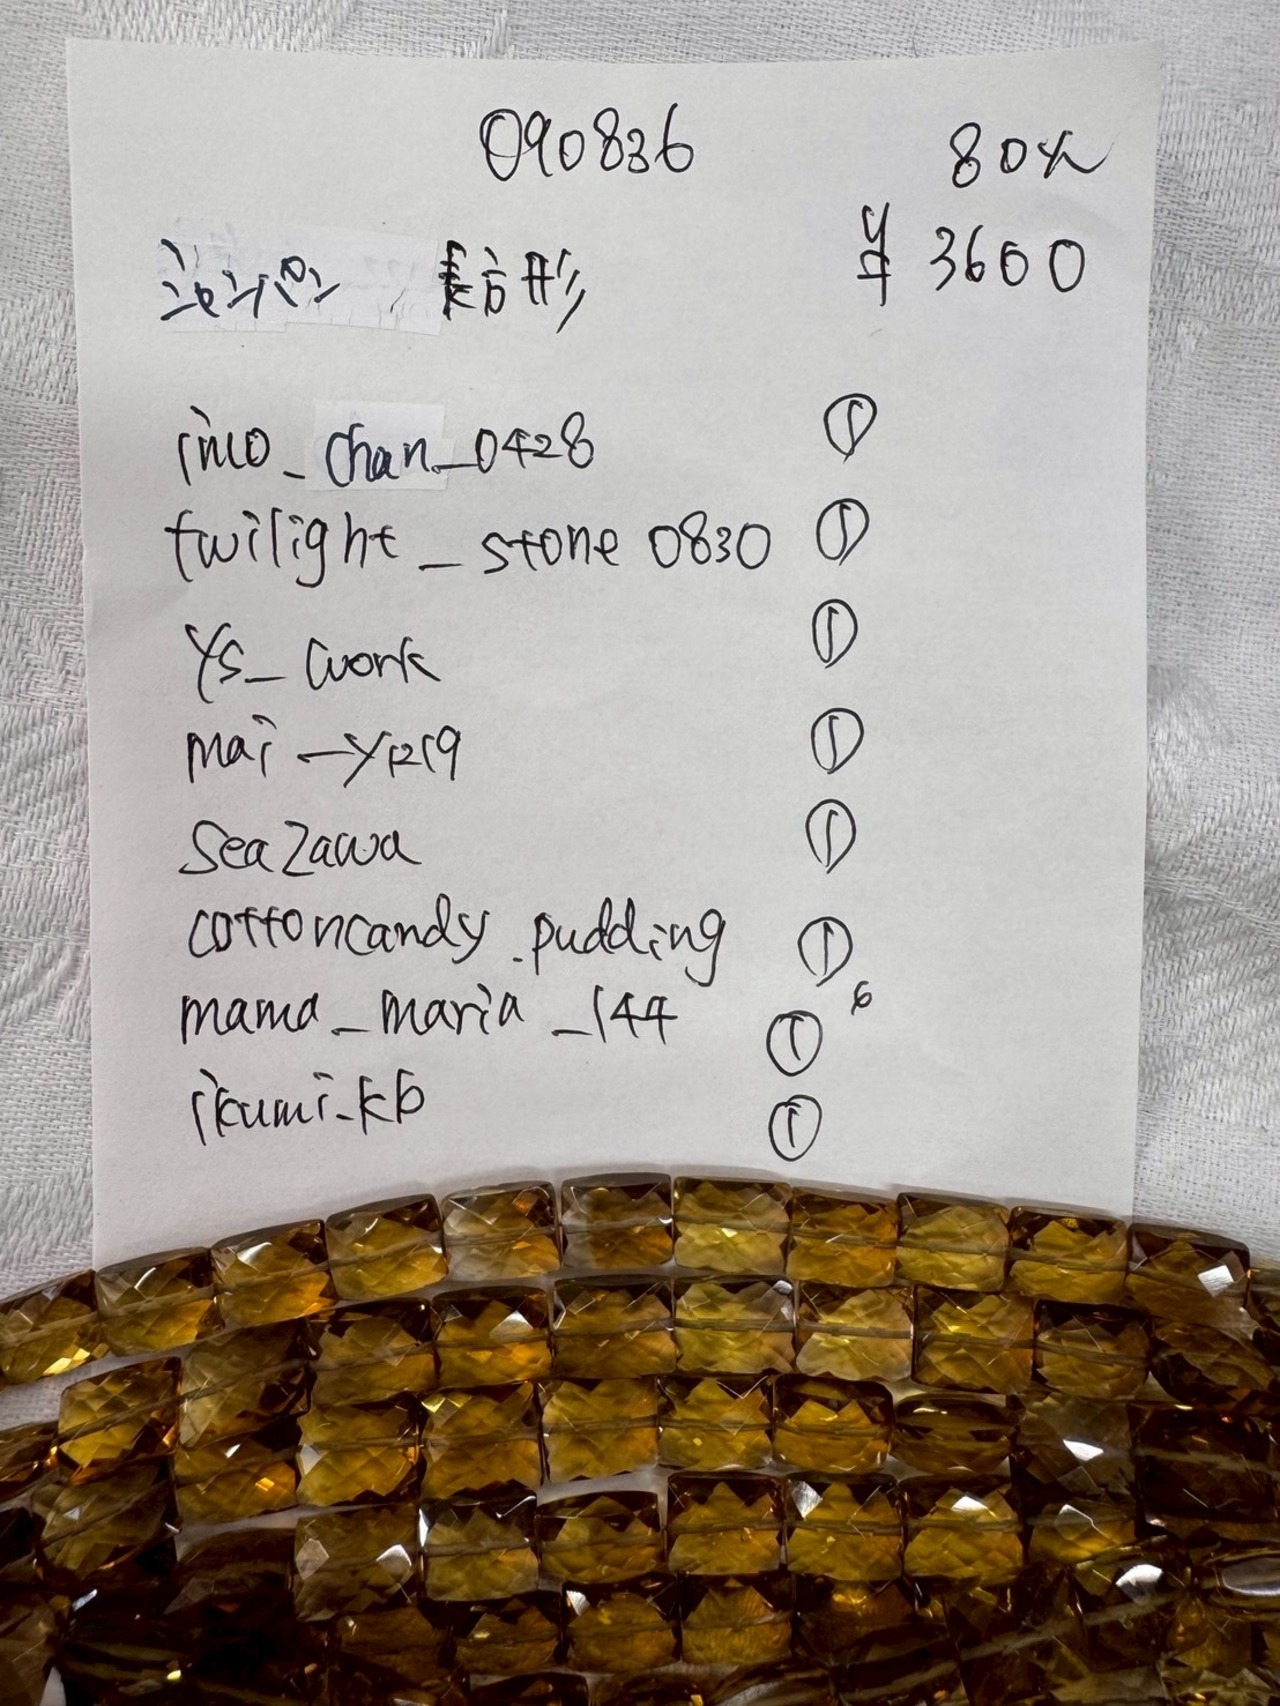 090836 80%
¥3600
シャンパン 長方形
imo_chan_0428 ①
twilight_stone 0830 ①
Ys_work ①
mai_y1219 ①
Seazawa ①
cottoncandy.pudding ①
6
mama_maria_144 ①
ikumi_kb ①